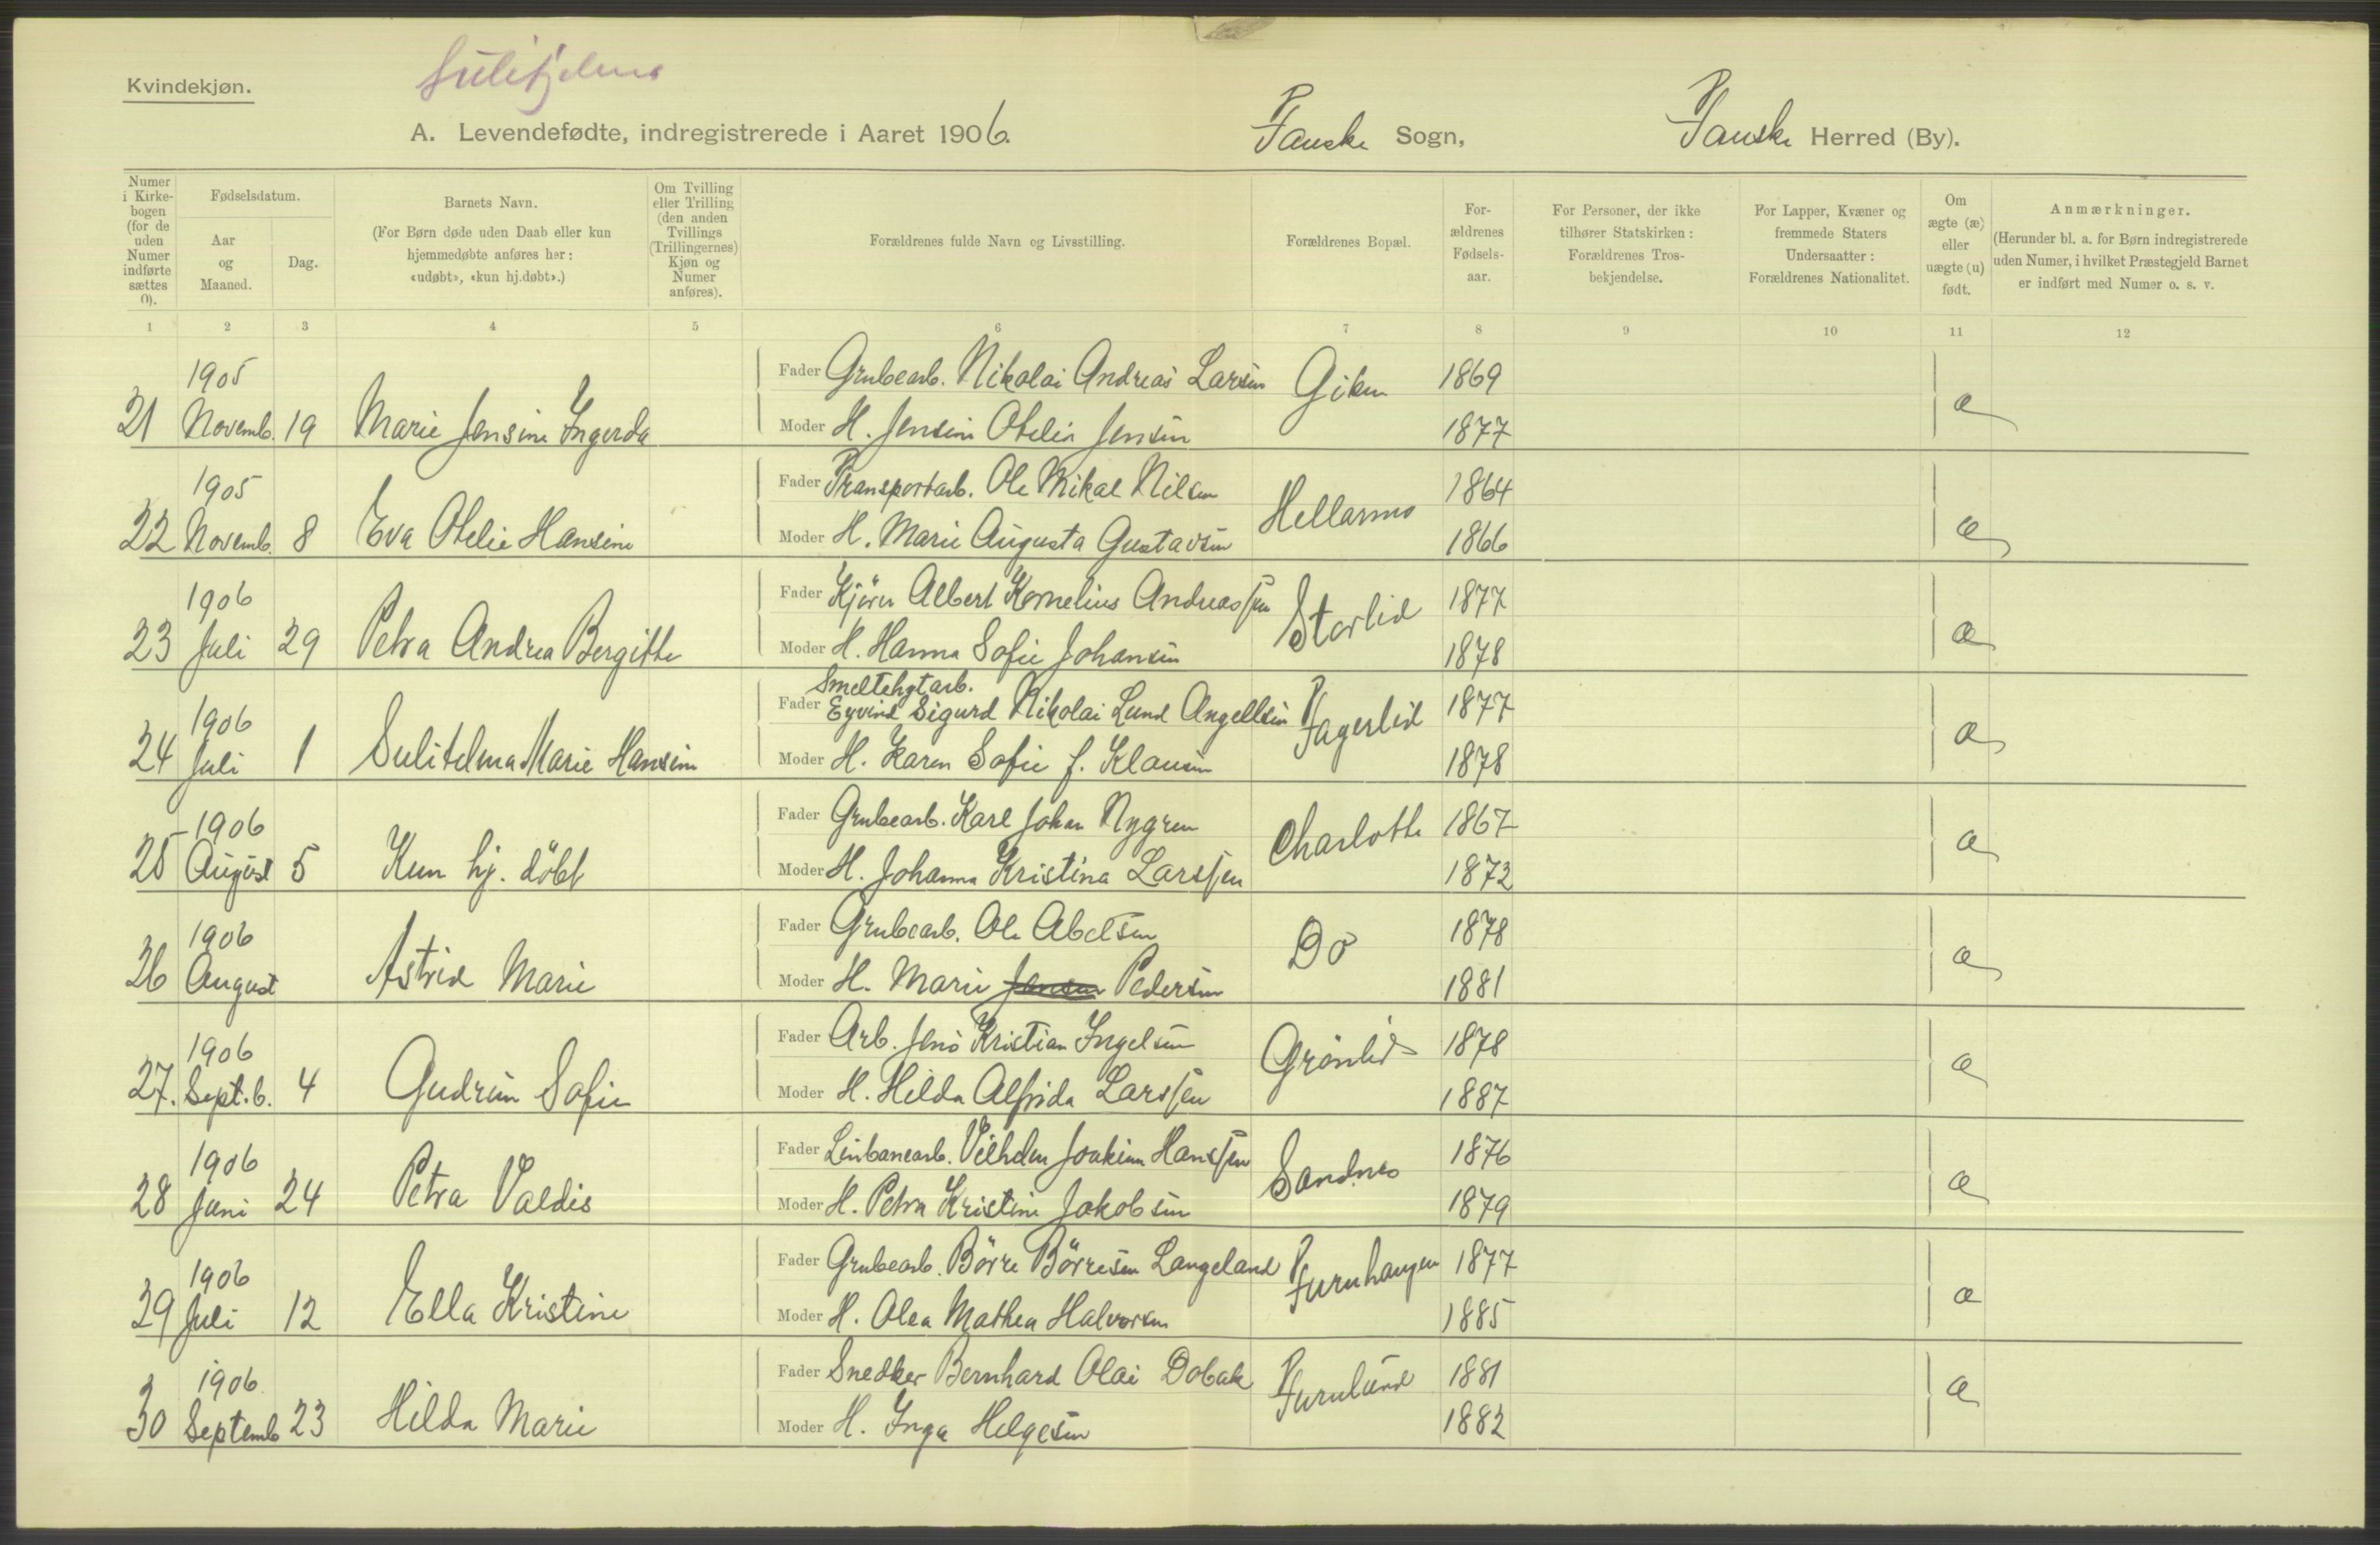 Kvindekjøn.
Sulitjelma
A. Levendefødte, indregistrerede i Aaret 1906.
Fauske Sogn,
Fauske Herred (By).
Numer i Kirkebogen (for de uden Numer indførte sættes 0).
Fødselsdatum.
Aar og Maaned.
Dag.
Barnets Navn.
(For Børn døde uden Daab eller kun hjemmedøbte anføres her: «udøbt», «kun hj.døbt».)
Om Tvilling eller Trilling (den anden Tvillings (Trillingernes) Kjøn og Numer anføres).
Forældrenes fulde Navn og Livsstilling.
Forældrenes Bopæl.
Forældrenes Fødselsaar.
For Personer, der ikke tilhører Statskirken: Forældrenes Trosbekjendelse.
For Lapper, Kvæner og fremmede Staters Undersaatter: Forældrenes Nationalitet.
Om ægte (æ) eller uægte (u) født.
Anmærkninger.
(Herunder bl. a. for Børn indregistrerede uden Numer, i hvilket Præstegjeld Barnet er indført med Numer o. s. v.
1 2 3 4 5 6 7 8 9 10 11 12
1905
21 Novemb. 19 Marie Jensine Ingerda
Fader Grubearb. Nikolai Andreas Larsen Giken 1869 æ
Moder H. Jensine Otelia Jensen 1877
1905
22 Novemb. 8 Eva Otelie Hansine
Fader Transportarb. Ole Mikal Nilsen Hellarmo 1864 æ
Moder H. Marie Augusta Gustavsen 1866
1906
23 Juli 29 Petra Andrea Bergitte
Fader Kjører Albert Kornelius Andreassen Storlid 1877 æ
Moder H. Hanna Sofie Johansen 1878
1906
24 Juli 1 Sulitelma Marie Hansine
Smeltehytarb.
Fader Eyvind Sigurd Nikolai Lund Angellsen Fagerlid 1877 æ
Moder H. Karen Sofie f. Klausen 1878
1906
25 August 5 Kun hj. döbt
Fader Grubearb. Karl Johan Nygren Charlotte 1867 æ
Moder H. Johanna Kristina Larssen 1872
1906
26 August Astrid Marie
Fader Grubearb. Ole Abelsen Do 1878 æ
Moder H. Marie Jensen Pedersen 1881
1906
27. Sept.b. 4 Gudrun Sofie
Fader Arb. Jens Kristian Ingelsen Grönlid 1878 æ
Moder H. Hilda Alfrida Larssen 1887
1906
28 Juni 24 Petra Valdis
Fader Linbanearb. Vilhelm Joakim Hanssen Sandnes 1876 æ
Moder H. Petra Kristine Jakobsen 1879
1906
29 Juli 12 Ella Kristine
Fader Grubearb. Börre Börresen Langeland Furuhaugen 1877 æ
Moder H. Olea Mathea Halvorsen 1885
1906
30 Septemb 23 Hilda Marie
Fader Snedker Bernhard Olai Dobak Furulund 1881 æ
Moder H. Inga Helgesen 1882